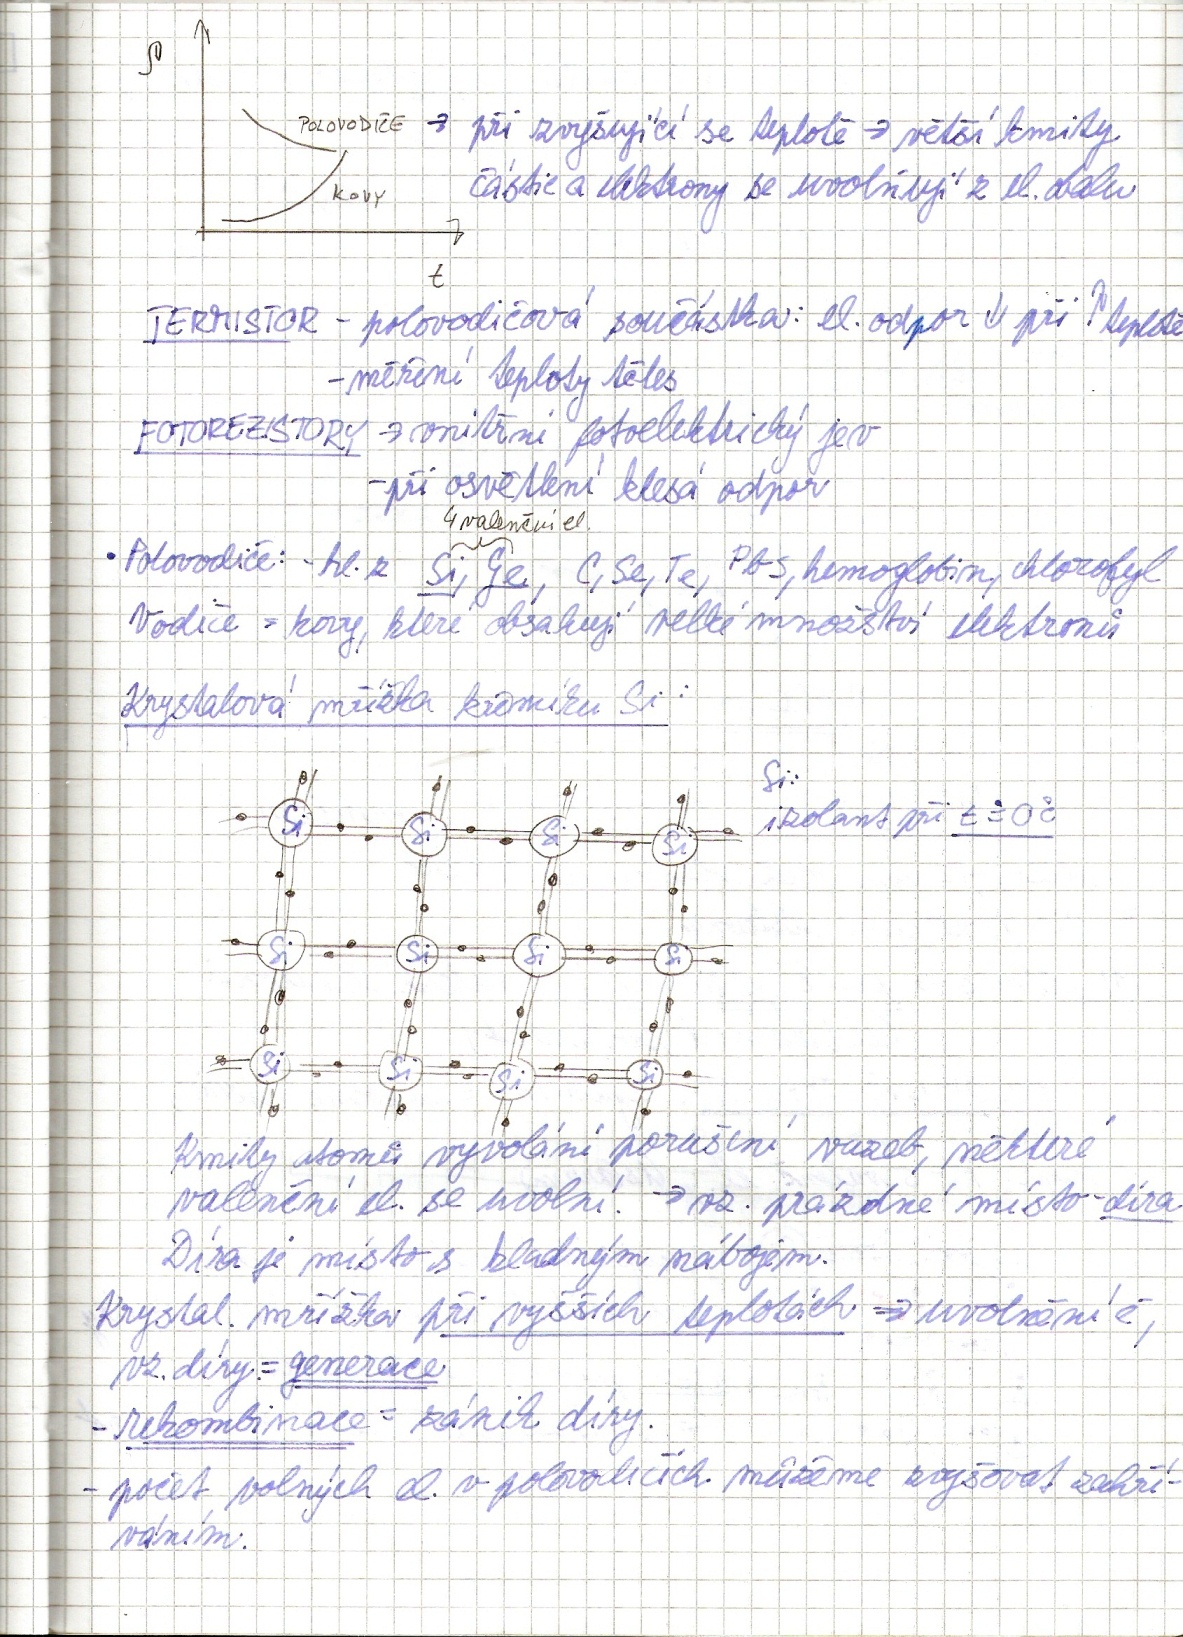 ρ
POLOVODIČE → při zvyšující se teplotě → větší kmity
částic a elektrony se uvolňují z el. obalu
KOVY
t
TERMISTOR - polovodičová součástka: el. odpor ↓ při ↑ teplotě
- měření teploty těles
FOTOREZISTORY → vnitřní fotoelektrický jev
- při osvětlení klesá odpor
4 valenční el.
• Polovodiče: - hl. z Si, Ge, C, Se, Te, PbS, hemoglobin, chlorofyl
Vodiče = kovy, které obsahují velké množství elektronů
Krystalová mřížka křemíku Si:
Si:
izolant při t ≐ 0°C
Si Si Si Si
Si Si Si Si
Si Si Si Si
Kmity atomů vyvolání porušení vazeb, některé
valenční el. se uvolní. → vz. prázdné místo - díra
Díra je místo s kladným nábojem.
Krystal. mřížka při vyšších teplotách ⇒ uvolnění e⁻,
vz. díry = generace
- rekombinace = zánik díry.
- počet volných el. v polovodičích můžeme zvyšovat zahří-
váním.